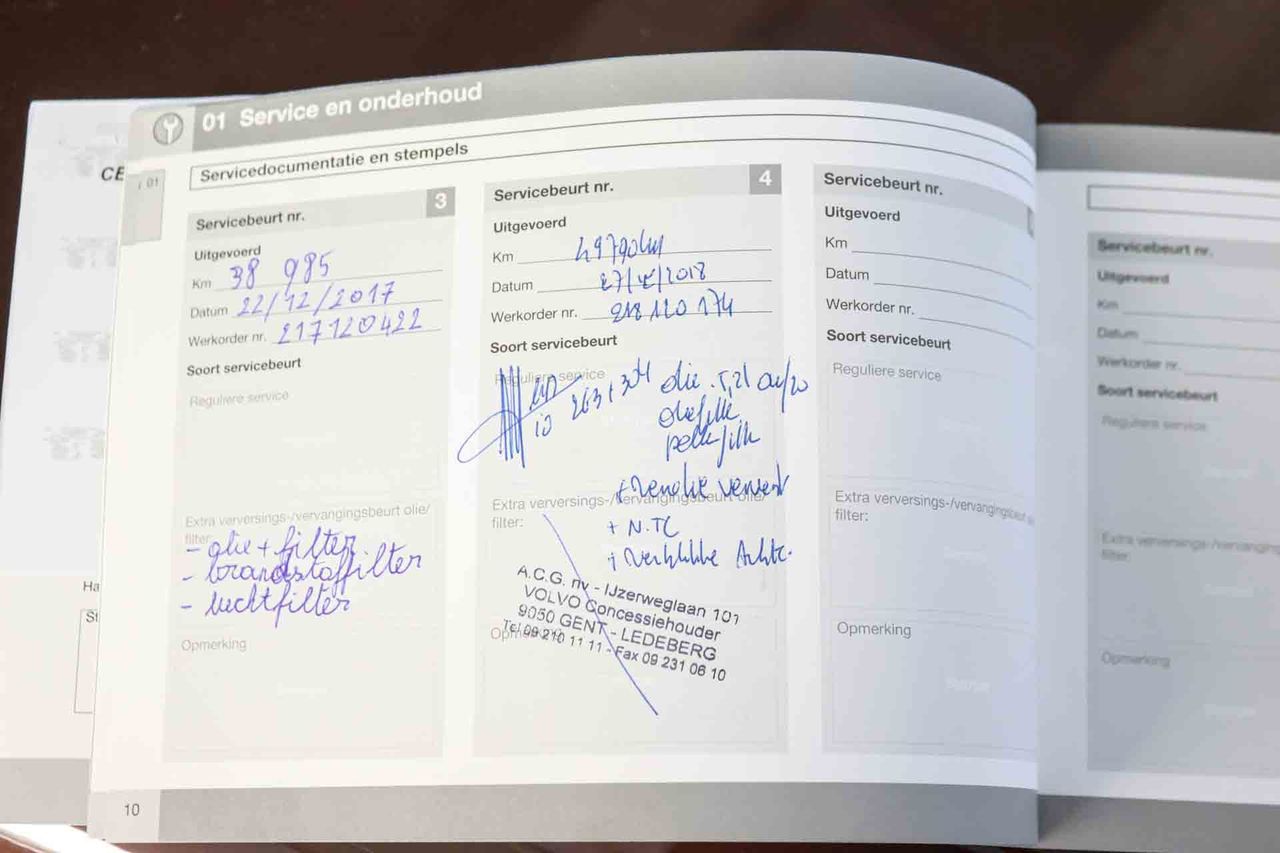 01 Service en onderhoud
Servicedocumentatie en stempels
01
CE
Servicebeurt nr. 3
Uitgevoerd
Km 38 985
Datum 22/12/2017
Werkorder nr. 217120422
Soort servicebeurt
Reguliere service
Extra verversings-/vervangingsbeurt olie/
filter:
- olie + filter
- brandstoffilter
- luchtfilter
Opmerking
Servicebeurt nr. 4
Uitgevoerd
Km 49790km
Datum 27/12/2018
Werkorder nr. 218 120 174
Soort servicebeurt
Reguliere service
olie 5,2l
oliefilter
+ N.TC
Extra verversings-/vervangingsbeurt olie/
filter:
A.C.G. nv - IJzerweglaan 101
VOLVO Concessiehouder
9050 GENT - LEDEBERG
Tel 09 210 11 11 - Fax 09 231 06 10
Opmerking
Servicebeurt nr.
Uitgevoerd
Km
Datum
Werkorder nr.
Soort servicebeurt
Reguliere service
Extra verversings-/vervangingsbeurt
filter:
Opmerking
Servicebeurt nr.
Uitgevoerd
Km
Datum
Werkorder nr.
Soort servicebeurt
Reguliere service
Extra verversings-/vervanging
filter:
Opmerking
Ha
St
10